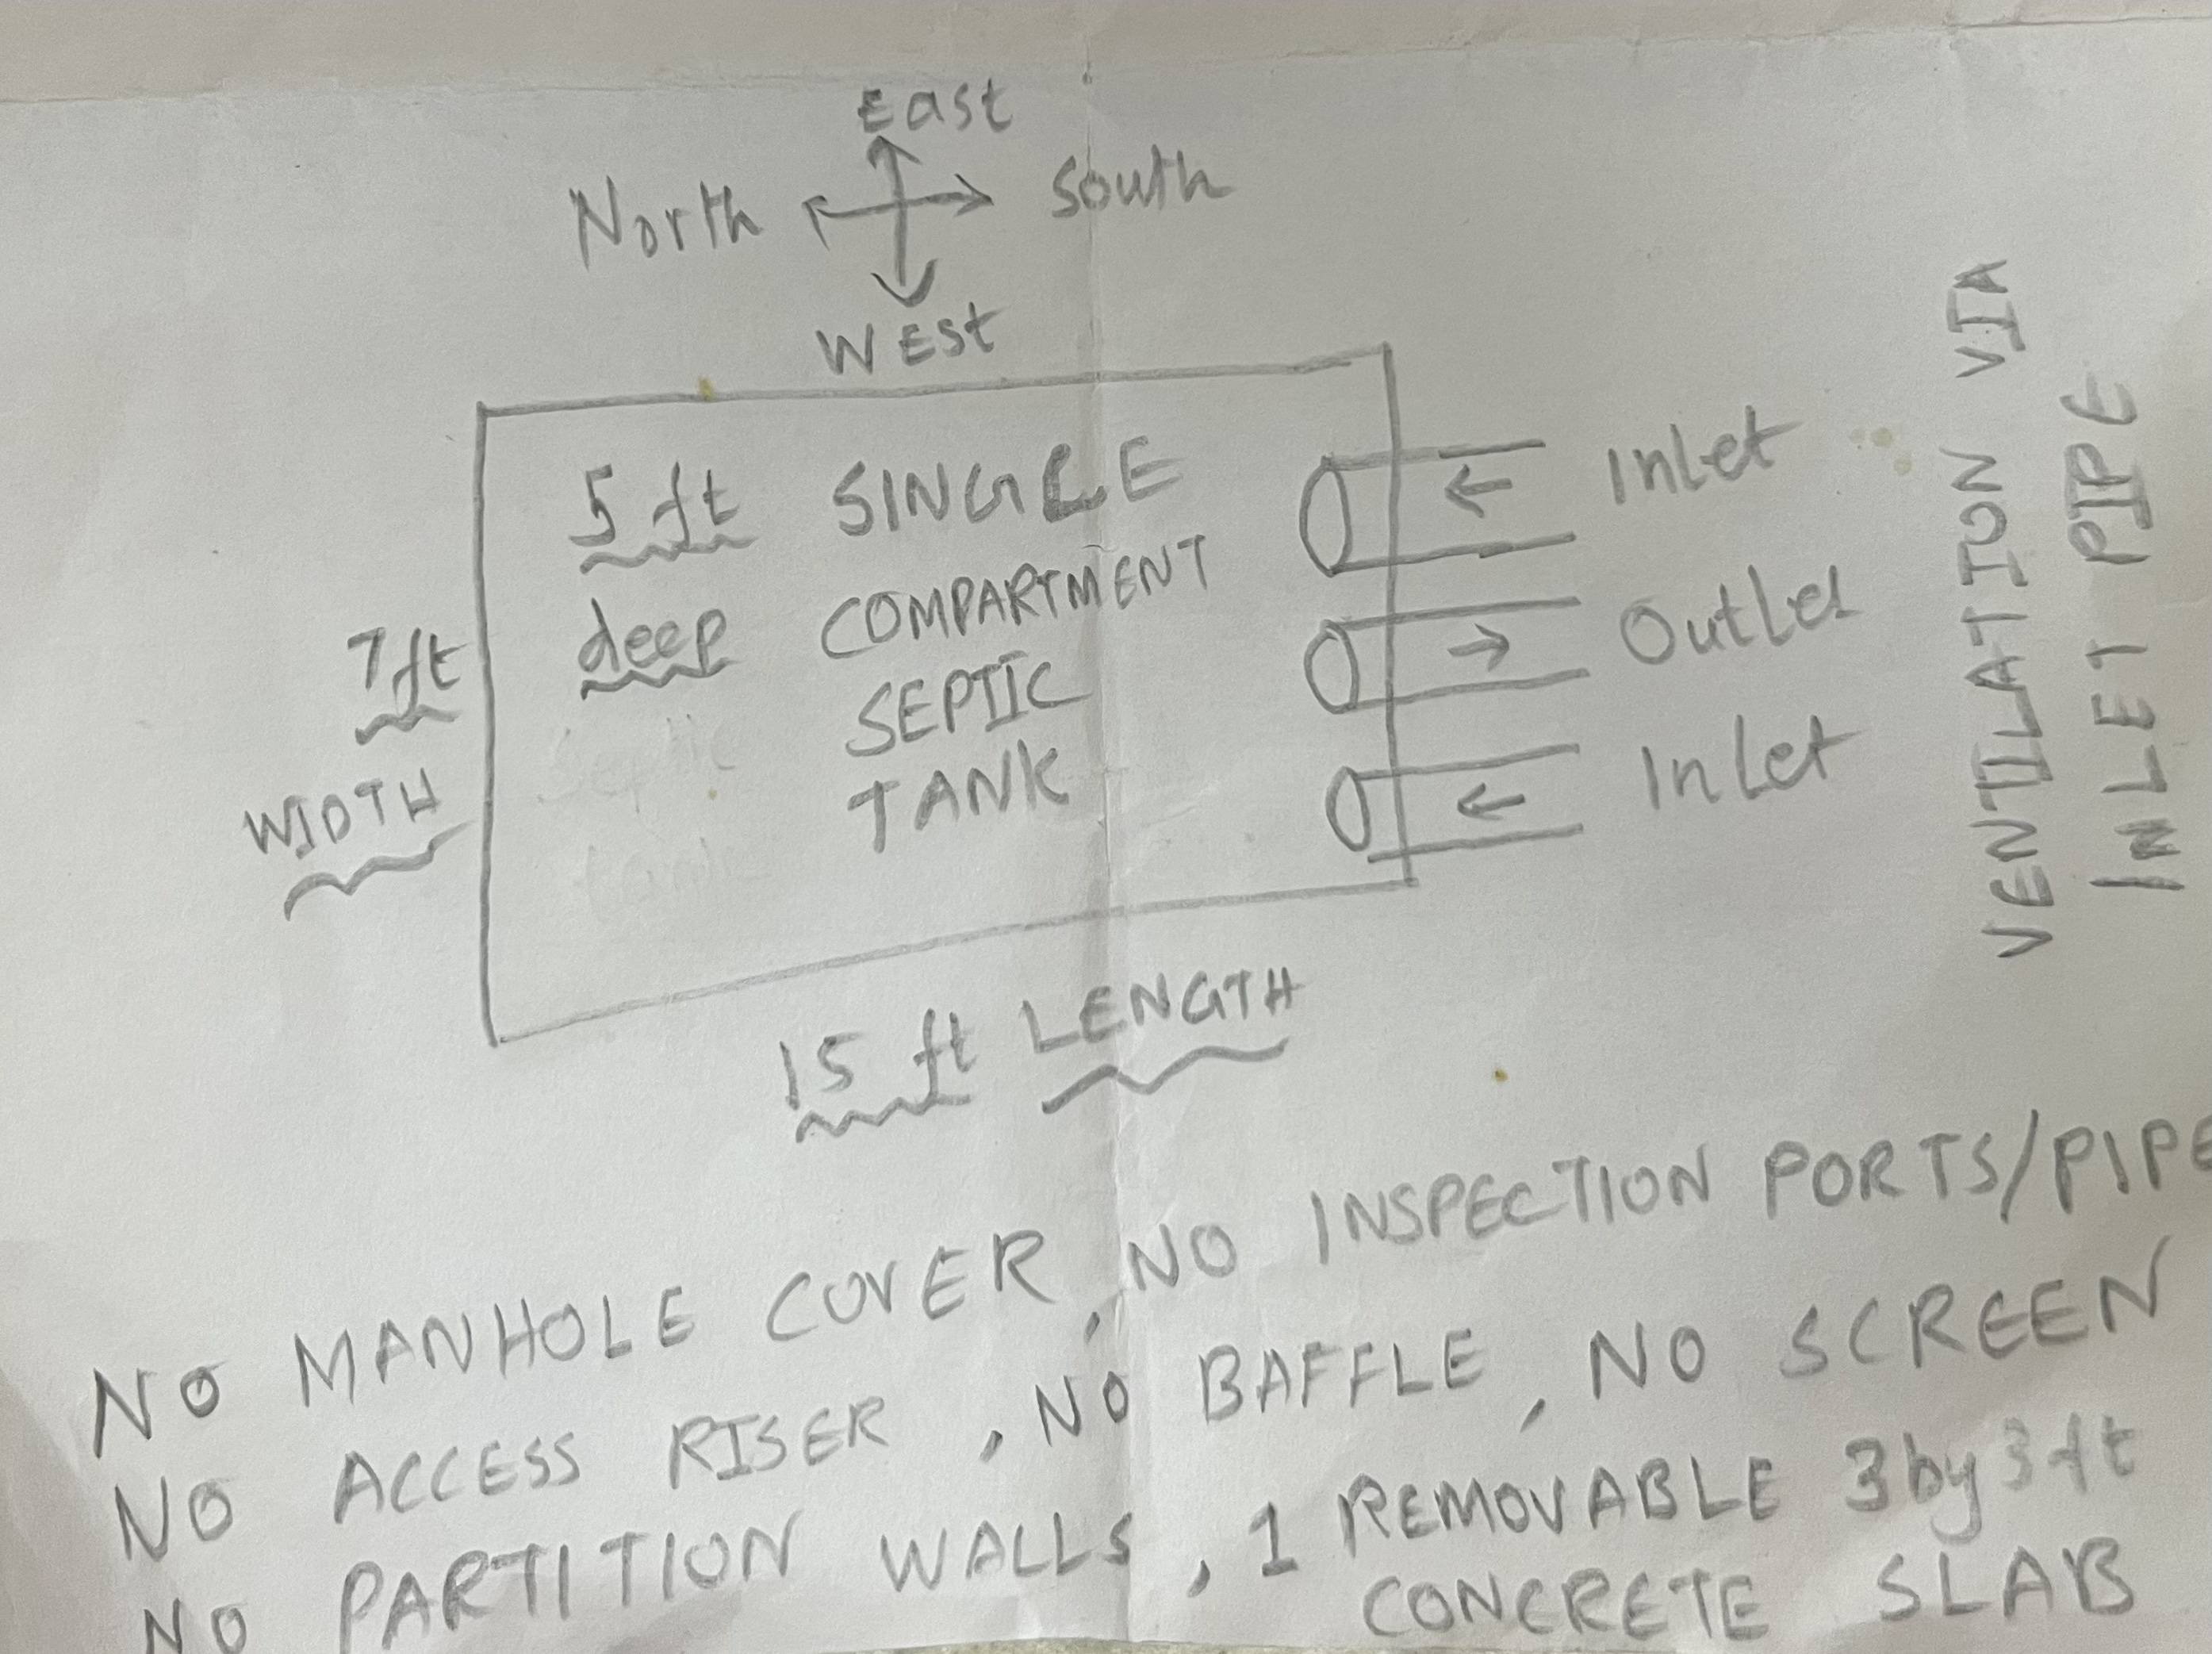 East
North
South
WEst
5 ft SINGLE
deep COMPARTMENT
SEPTIC
TANK
septic
tank
7ft
WIDTH
15 ft LENGTH
Inlet
Outlet
Inlet
VENTILATION VIA
INLET PIPE
NO MANHOLE COVER, NO INSPECTION PORTS/PIPE
NO ACCESS RISER, NO BAFFLE, NO SCREEN
NO PARTITION WALLS, 1 REMOVABLE 3 by 3 ft
CONCRETE SLAB